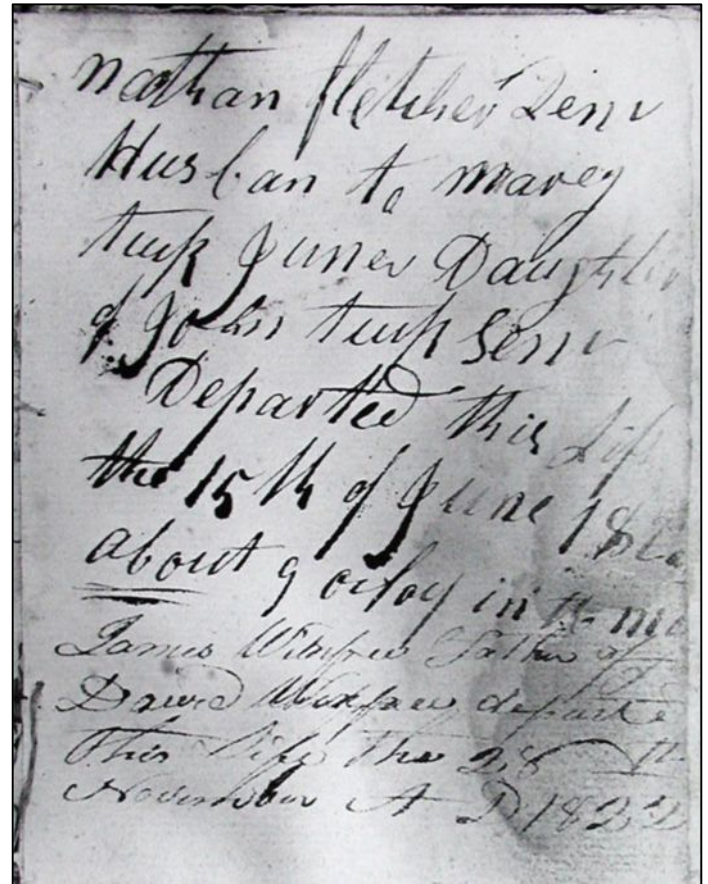 nathan fletcher Senr
Husban to marey
turk Juner Daughter
of John turk Senr
Departed this Life
the 15th of June
about 9 ocloy in
James Winfree Father of
David Winfree departe
This life the 28 th
November A D 1822